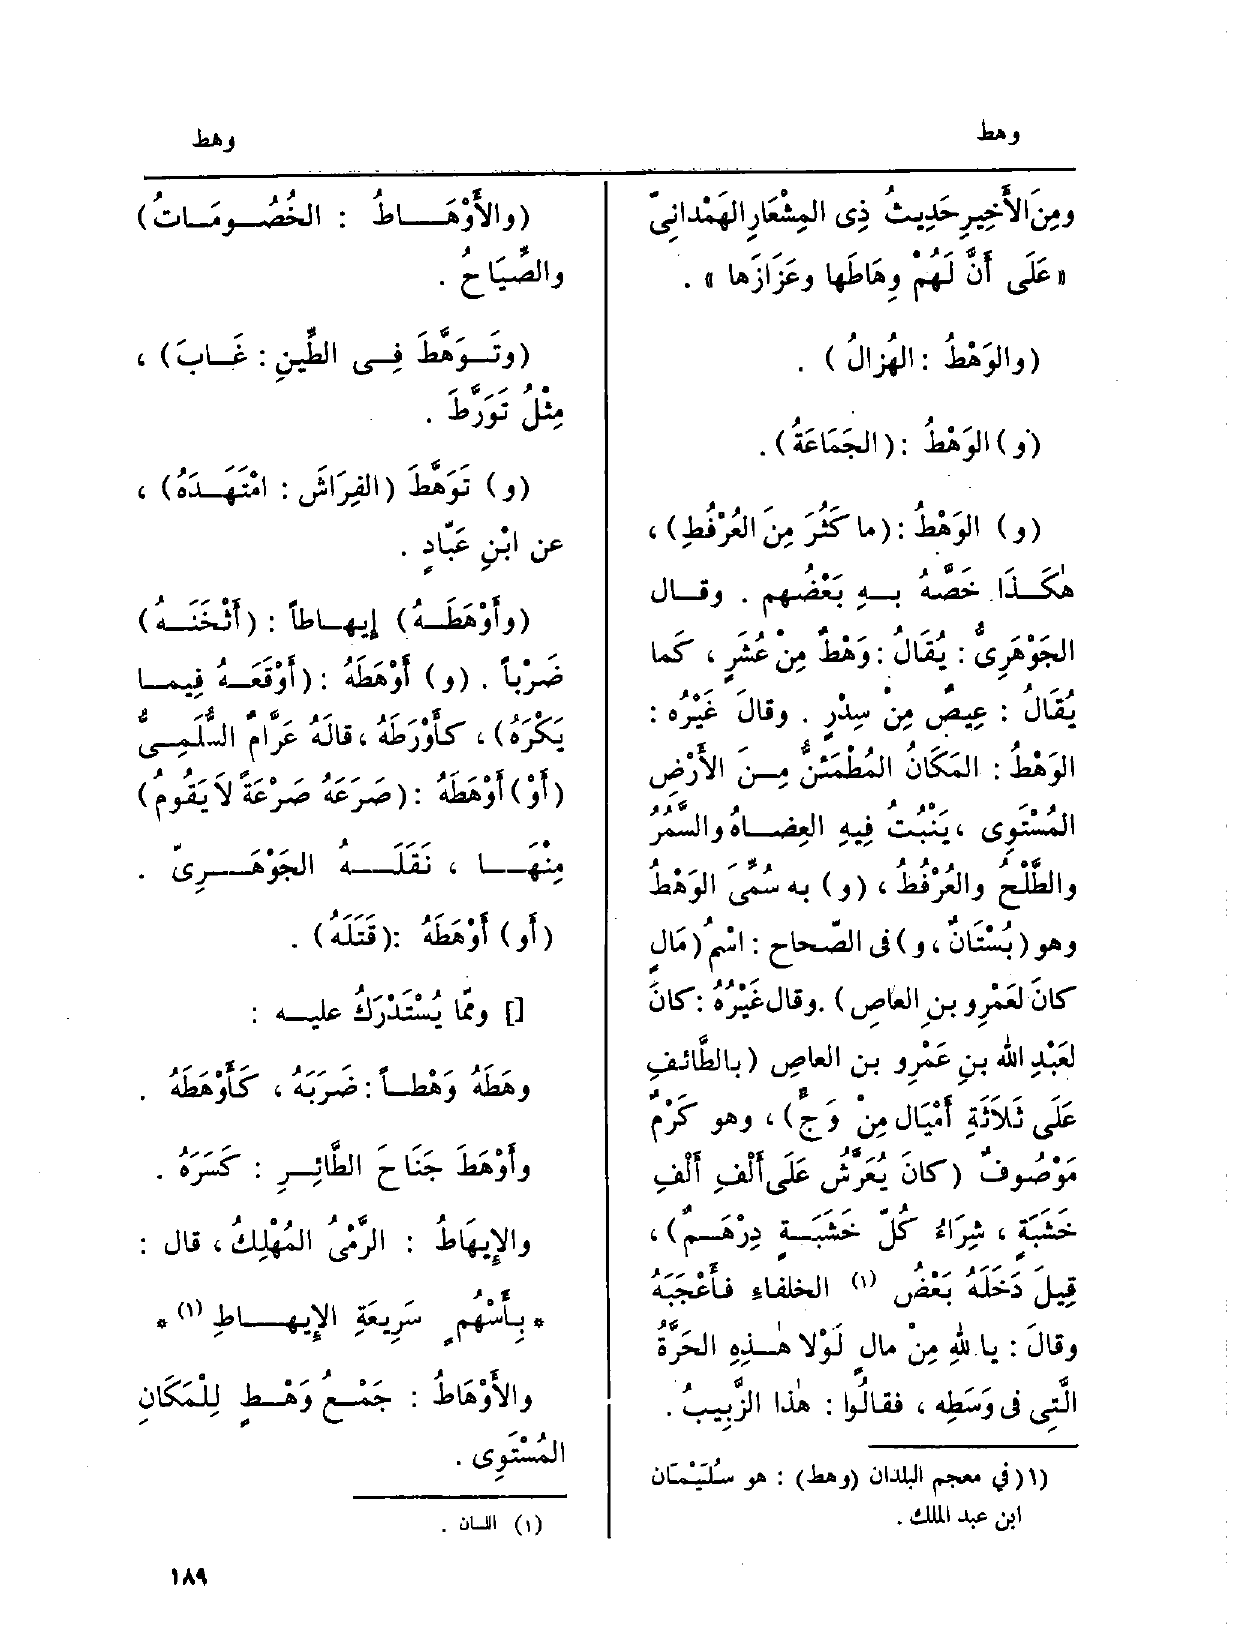 وهط
وهط
ومِنَ الأَخِيرِ حَدِيثُ ذِى المِشْعَارِ الهَمْدانِىّ
«عَلَى أَنَّ لَهُمْ وِهَاطَها وعَزَازَها» .
(والوَهْطُ : الهُزالُ ) .
(و) الوَهْطُ : (الجَمَاعَةُ) .
(و) الوَهْطُ : (ما كَثُرَ مِنَ العُرْفُطِ) ،
هٰكَــذَا خَصَّهُ بــهِ بَعْضُهم . وقــال
الجَوْهَرِىُّ : يُقَالُ : وَهْطٌ مِنْ عُشَرٍ ، كَما
يُقَالُ : عِيصٌ مِنْ سِدْرٍ . وقالَ غَيْرُه :
الوَهْطُ : المَكَانُ المُطْمَئنُّ مِــنَ الأَرْضِ
المُسْتَوِى ، يَنْبُتُ فِيهِ العِضــاهُ والسَّمُرُ
والطَّلْحُ والعُرْفُطُ ، (و) به سُمِّىَ الوَهْطُ
وهو (بُسْتَانٌ ، و) فى الصّحاح : اسْمُ (مَالٍ
كانَ لعَمْرِو بنِ العاصِ) . وقال غَيْرُهُ : كانَ
لعَبْدِ الله بنِ عَمْرِو بن العاصِ (بالطَّائفِ
عَلَى ثَلاَثَةِ أَمْيَال مِنْ وَجٍّ) ، وهو كَرْمٌ
مَوْصُوفٌ (كانَ يُعَرَّشُ عَلَى أَلْفِ أَلْفِ
خَشَبَةٍ ، شِرَاءُ كُلِّ خَشَبَــةٍ دِرْهَــمٌ) ،
قِيلَ دَخَلَهُ بَعْضُ (١) الخلفاءِ فأَعْجَبَهُ
وقالَ : يا لَلّٰهِ مِنْ مالٍ لَوْلا هٰــذِهِ الحَرَّةُ
الَّتِى فى وَسَطِه ، فقالُوا : هٰذا الزَّبِيبُ .
(١) في معجم البلدان (وهط) : هو سُلَيْمَان
ابن عبد الملك .
(والأَوْهَـــاطُ : الخُصُــومَــاتُ)
والصِّيَاحُ .
(وتَــوَهَّطَ فِــى الطِّينِ : غَــابَ) ،
مِثْلُ تَوَرَّطَ .
(و) تَوَهَّطَ (الفِرَاشَ : امْتَهَــدَهُ) ،
عن ابْنِ عَبّادٍ .
(وأَوْهَطَــهُ) إِيهــاطاً : (أَثْخَنَــهُ)
ضَرْباً . (و) أَوْهَطَهُ : (أَوْقَعَــهُ فِيمــا
يَكْرَهُ) ، كأَوْرَطَهُ ، قالَهُ عَرَّامٌ السُّلَمِــىُّ
(أَوْ) أَوْهَطَهُ : (صَرَعَهُ صَرْعَةً لاَ يَقُومُ)
مِنْهَـــا ، نَقَلَـــهُ الجَوْهَـــرِىّ .
(أو) أَوْهَطَهُ : (قَتَلَهُ) .
[] وممّا يُسْتَدْرَكُ عليــه :
وهَطَهُ وَهْطــاً : ضَرَبَهُ ، كَأَوْهَطَهُ .
وأَوْهَطَ جَنَاحَ الطَّائِــرِ : كَسَرَهُ .
والإِيهَاطُ : الرَّمْىُ المُهْلِكُ ، قال :
* بِأَسْهُمٍ سَرِيعَةِ الإِيهـــاطِ (١) *
والأَوْهَاطُ : جَمْــعُ وَهْــطٍ لِلْمَكَانِ
المُسْتَوِى .
(١) اللسان .
١٨٩